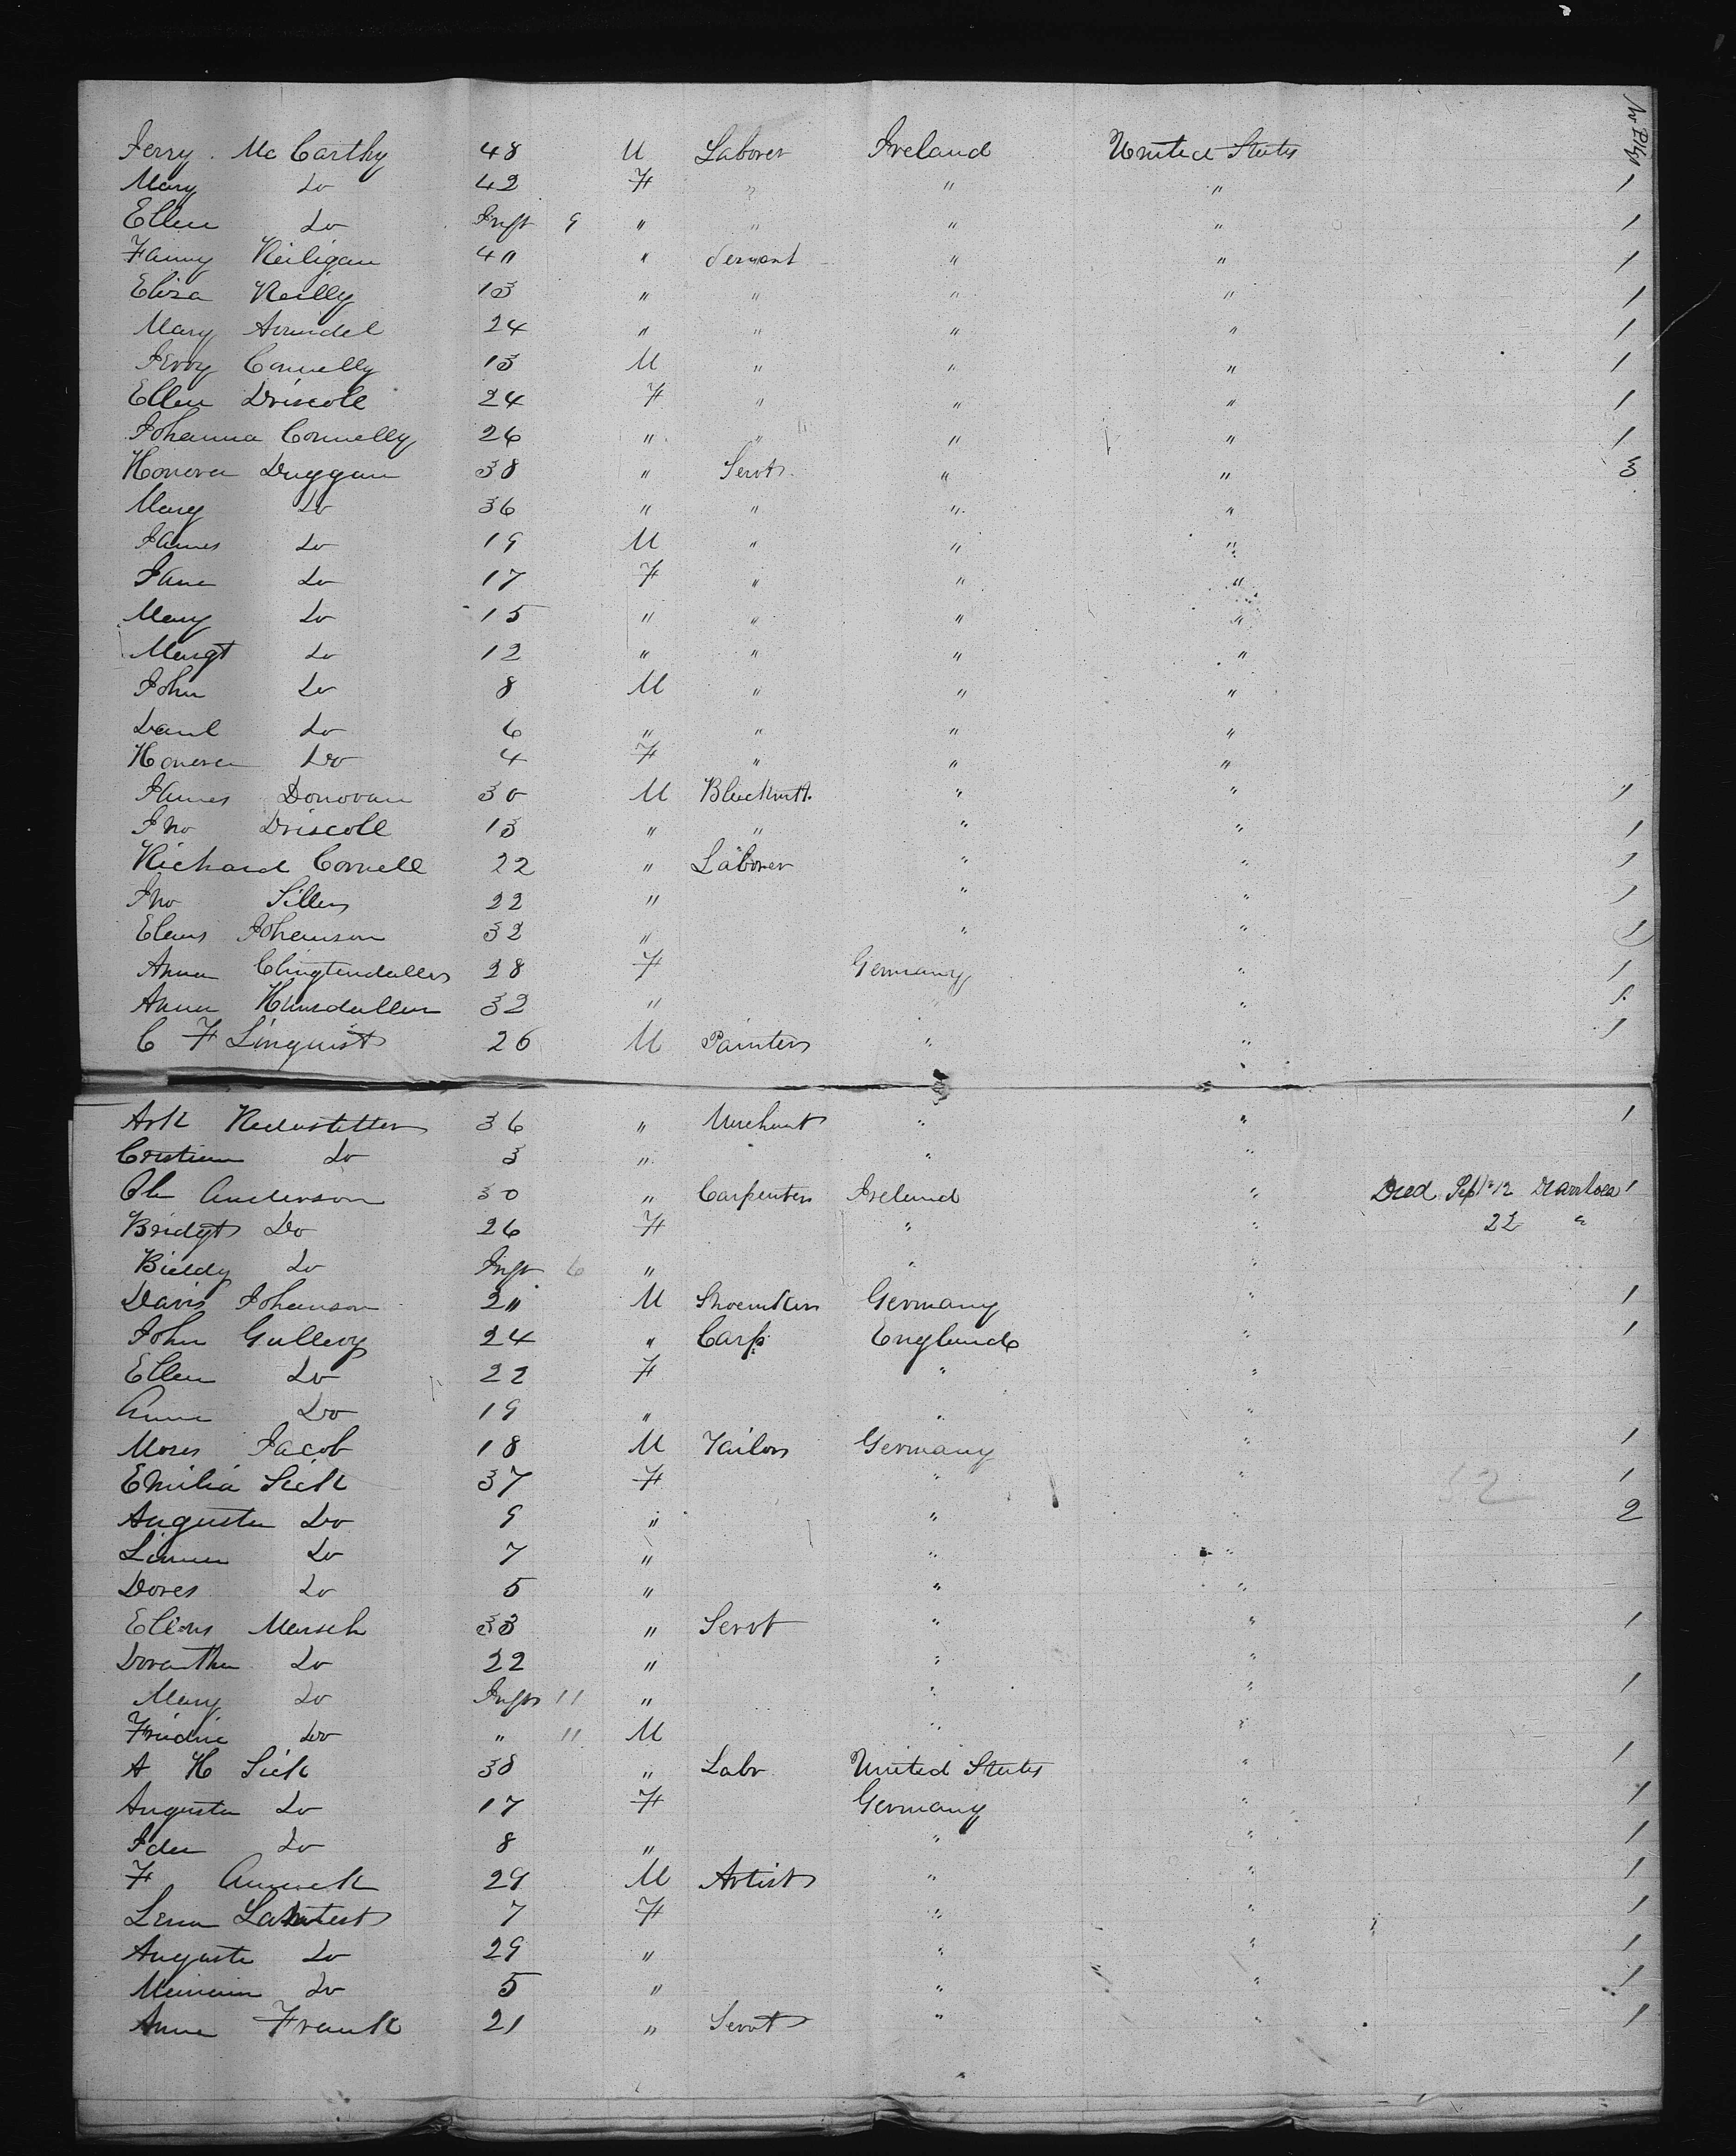 No Pkgs
Jerry McCarthy 48 M Laborer Ireland United States
Mary Do 42 F " " " 1
Ellen Do Inft 9 " " " " 1
Fanny 40 " Servant " " 1
Eliza Reilly 13 " " " " 1
Mary Arundel 24 " " " " 1
Jerry Connelly 13 M " " " 1
Ellen Driscoll 24 F " " " 1
Johanna Connelly 26 " " " " 1
Honora Duggan 38 " Servt " " 3
Mary Do 36 " " " "
James Do 19 M " " "
Jane Do 17 F " " "
Mary Do 15 " " " "
Margt Do 12 " " " "
John Do 8 M " " "
Danl Do 6 " " " "
Honora Do 4 F " " "
James Donovan 30 M " " 1
Jno Driscoll 13 " " " " 1
Richard Cornell 22 " Laborer " " 1
Jno 22 " " " 1
Johanson 32 " " " 1
Anna 28 F Germany " 1
Anna 32 " " " 1
C F Linquist 26 M Painter " " 1
36 " Merchant " " 1
Do 3 " " "
Anderson 30 " Carpenter Ireland " Died Sept 12 1
Bridgt Do 26 F " " 22 "
Biddy Do Inft 6 " " "
Davis Johanson 20 M Germany " 1
John Gullery 24 " Carp England " 1
Ellen Do 22 F " "
Anna Do 19 " " "
Moses Jacob 18 M Tailor Germany " 1
Emilia Sick 37 F " " 52 1
Augusta Do 9 " " " 2
Do 7 " " "
Dores Do 5 " " "
Marsch 33 " Servt " " 1
Dorathea Do 22 " " "
Mary Do Inft 11 " " " 1
Do " 11 M " "
A H Sick 38 " Labr United States " 1
Augusta Do 17 F Germany " 1
Ida Do 8 " " " 1
F 29 M Artist " " 1
Lena 7 F " " 1
Auguste Do 29 " " " 1
Do 5 " " " 1
Anna Frank 21 " Servt " " 1